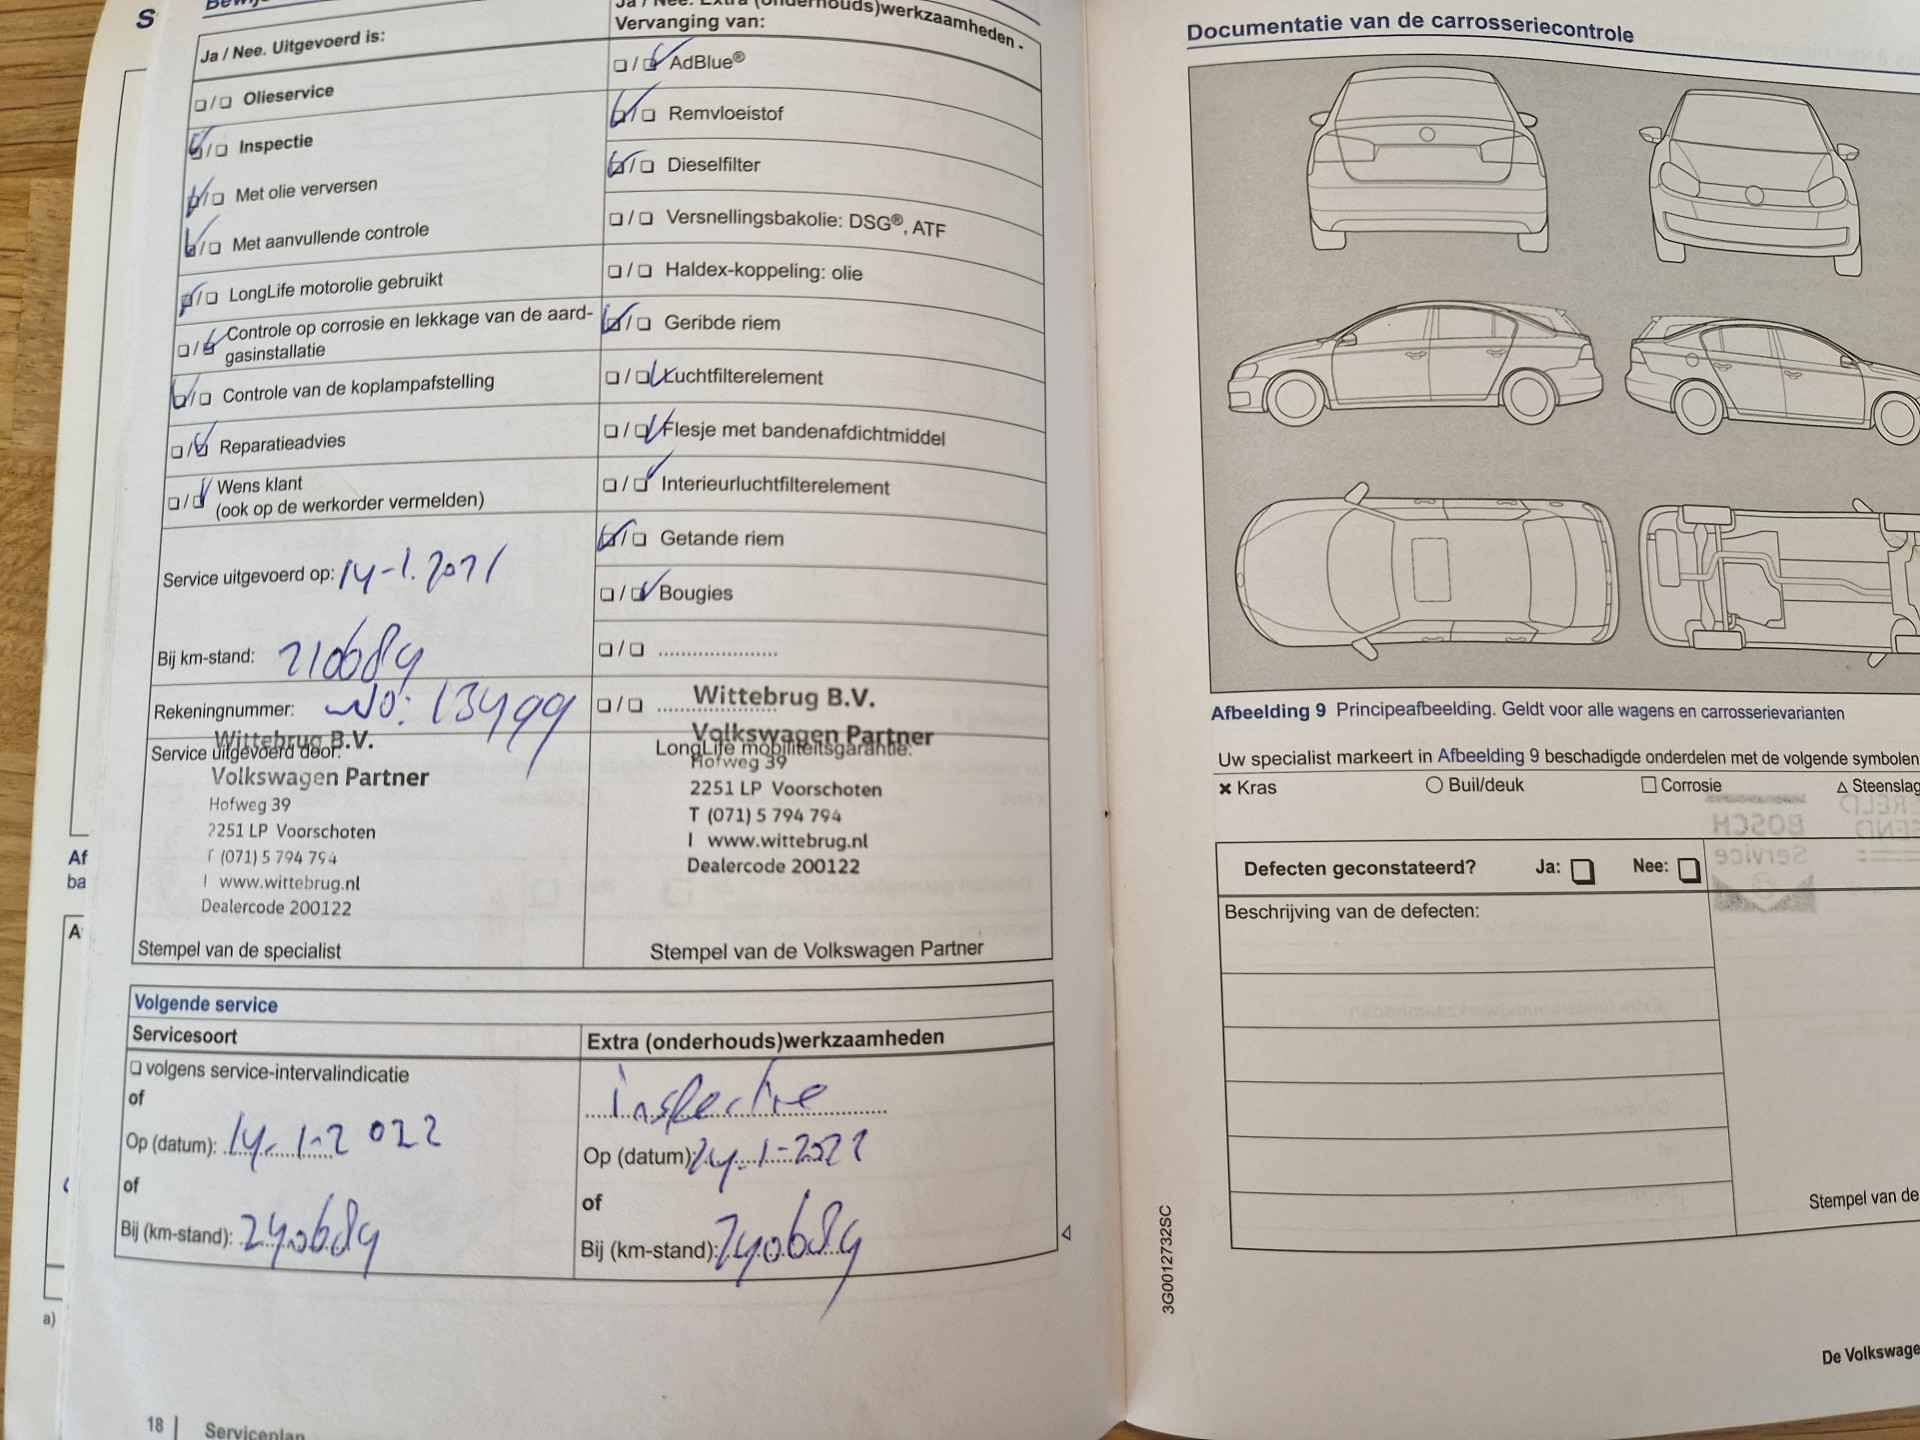 S
Ja / Nee. Uitgevoerd is:
❏ / ❏ Olieservice
❏ / ❏ Inspectie
❏ / ❏ Met olie verversen
❏ / ❏ Met aanvullende controle
❏ / ❏ LongLife motorolie gebruikt
❏ / ❏ Controle op corrosie en lekkage van de aard-
gasinstallatie
❏ / ❏ Controle van de koplampafstelling
❏ / ❏ Reparatieadvies
❏ / ❏ Wens klant
(ook op de werkorder vermelden)
Service uitgevoerd op: 14-1.2021
Bij km-stand: 210689
Rekeningnummer: No: 13499
Service uitgevoerd door:
Wittebrug B.V.
Volkswagen Partner
Hofweg 39
2251 LP Voorschoten
T (071) 5 794 794
I www.wittebrug.nl
Dealercode 200122
Stempel van de specialist
Ja / Nee. Extra (onderhouds)werkzaamheden -
Vervanging van:
❏ / ❏ AdBlue®
❏ / ❏ Remvloeistof
❏ / ❏ Dieselfilter
❏ / ❏ Versnellingsbakolie: DSG®, ATF
❏ / ❏ Haldex-koppeling: olie
❏ / ❏ Geribde riem
❏ / ❏ Luchtfilterelement
❏ / ❏ Flesje met bandenafdichtmiddel
❏ / ❏ Interieurluchtfilterelement
❏ / ❏ Getande riem
❏ / ❏ Bougies
❏ / ❏ ....................
❏ / ❏ ....................
Wittebrug B.V.
Volkswagen Partner
LongLife mobiliteitsgarantie:
Hofweg 39
2251 LP Voorschoten
T (071) 5 794 794
I www.wittebrug.nl
Dealercode 200122
Stempel van de Volkswagen Partner
Volgende service
Servicesoort
❏ volgens service-intervalindicatie
of
Op (datum): 14-1-2022
of
Bij (km-stand): 240689
Extra (onderhouds)werkzaamheden
inspectie
Op (datum): 14-1-2022
of
Bij (km-stand): 240689
18 | Serviceplan
Af
ba
A
a)
Documentatie van de carrosseriecontrole
Afbeelding 9 Principeafbeelding. Geldt voor alle wagens en carrosserievarianten
Uw specialist markeert in Afbeelding 9 beschadigde onderdelen met de volgende symbolen
× Kras ○ Buil/deuk □ Corrosie △ Steenslag
Defecten geconstateerd? Ja: ❏ Nee: ❏
Beschrijving van de defecten:
BOSCH
Service
Stempel van de
3G0012732SC
De Volkswage